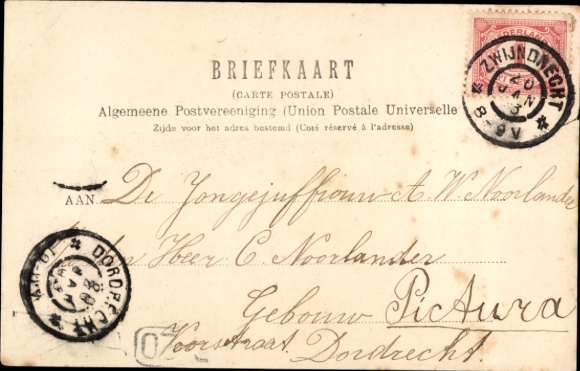 NEDERLAND
ZWIJNDRECHT
20
JAN
3
8-9V
BRIEFKAART
(CARTE POSTALE)
Algemeene Postvereeniging (Union Postale Universelle
Zijde voor het adres bestemd (Coté réservé à l'adresse)
AAN De Jongejuffrouw A. W. Noorlander
Heer C. Noorlander
Gebouw Pictura
Voorstraat Dordrecht.
DORDRECHT